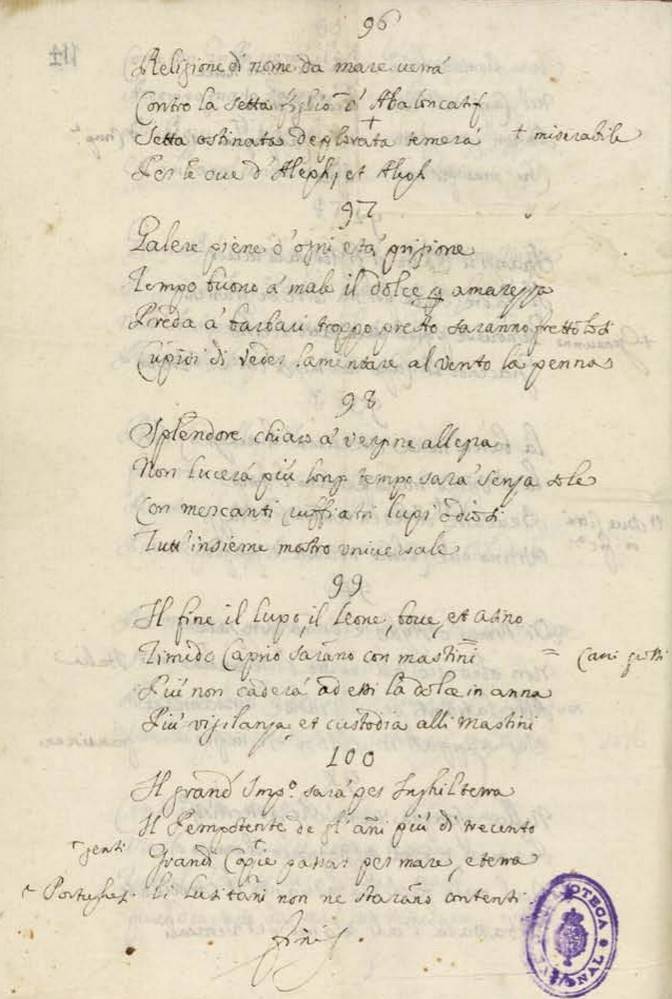 96
Religione di nome da mare uerrá
Contro la setta figlio d' Abaloncatif
Setta ostinata deplorata temerá + miserabile
Per le due d' Aleph, et Aleph
97
Galere piene d' ogni etá prigione
Tempo buono á male il dolce p amarezza
Preda á barbari troppo presto saranno frettolosi
Cupidi di veder lamentare al vento la penna
98
Splendore chiaro á vergine allegra
Non lucerá piú long tempo sará senza sole
Con mercanti ruffiani lupi odiosi
Tutt' insieme mostro vniuersale
99
Il fine il lupo, il leone, boue, et asino
Timida Caprio sarano con mastini = Cani grossi
Piú non caderá ad essi la dolce in anna
Piú vigilanza, et custodia alli Mastini
100
Il grand' Impº. sará per Inghilterra
Il Pempotente de gl' añi piú di trecento
genti Grandi Copie passar per mare, e terra
Portughesi li Lusitani non ne starano contenti.
Finis.
BIBLIOTECA NACIONAL